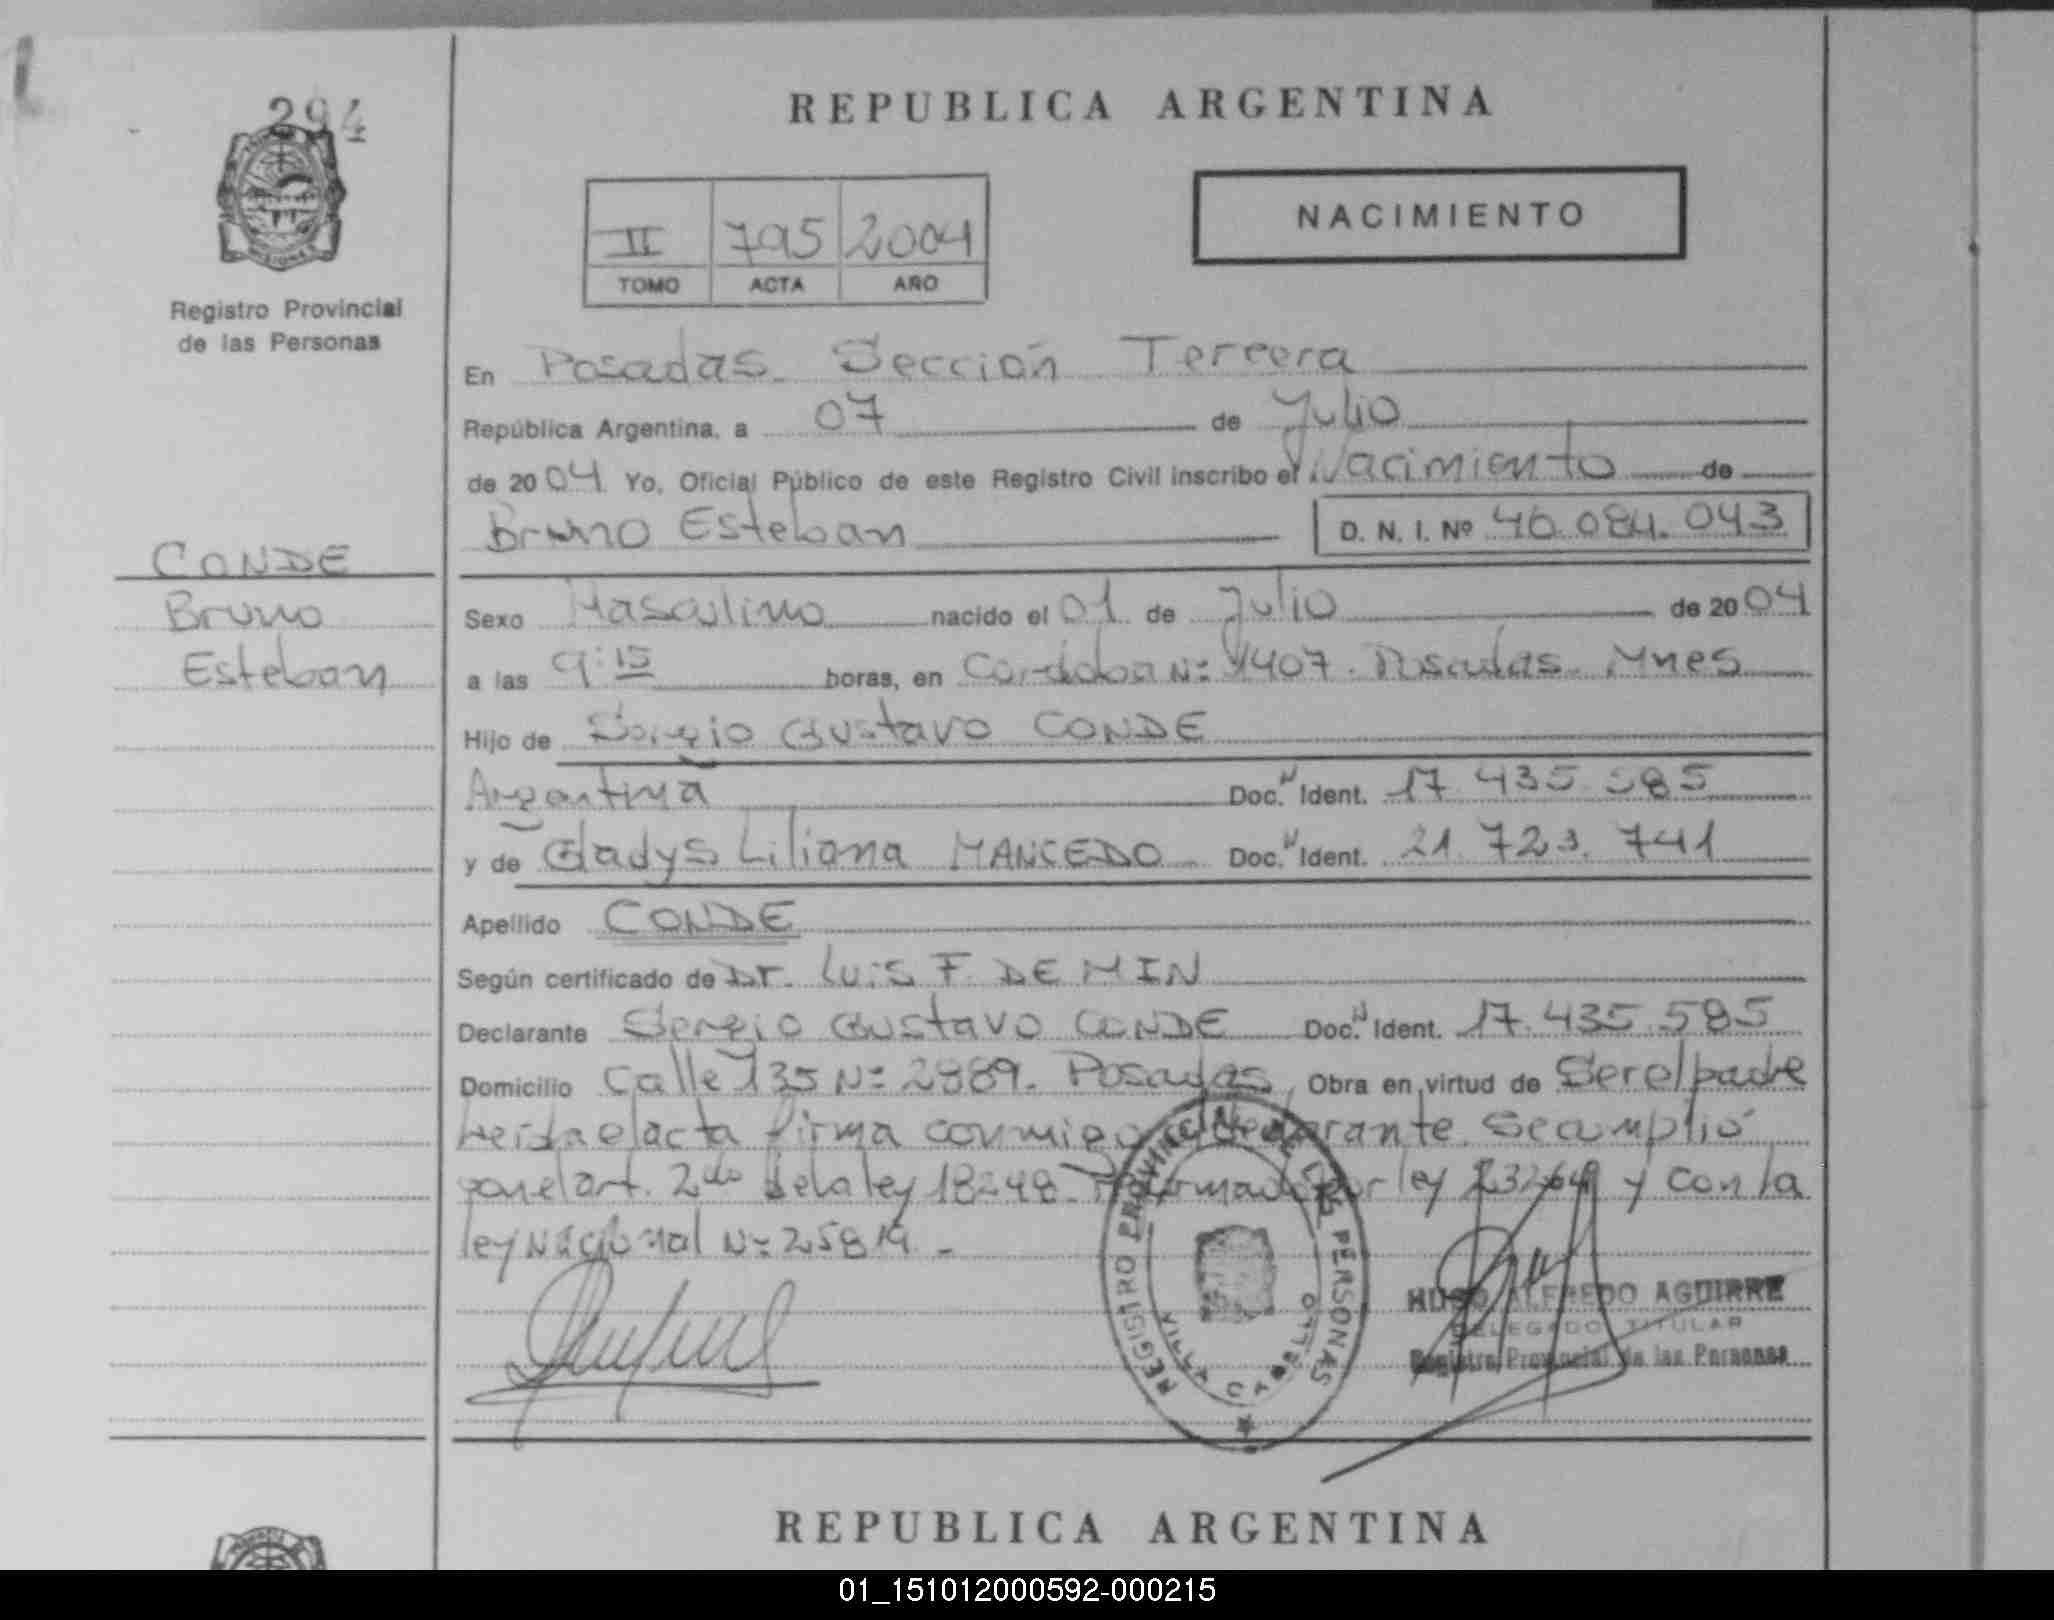 294
REPUBLICA ARGENTINA
NACIMIENTO
II 795 2004
TOMO ACTA AÑO
Registro Provincial
de las Personas
En Posadas Sección Tercera
República Argentina, a 07 de Julio
de 2004 Yo, Oficial Público de este Registro Civil inscribo el Nacimiento de
Bruno Esteban D. N. I. Nº 46.084.043
CONDE
Bruno
Esteban
Sexo Masculino nacido el 01 de Julio de 2004
a las 9:15 horas, en Cordoba Nº 1407. Posadas. Mnes
Hijo de Sergio Gustavo CONDE
Argentina Doc. N Ident. 17.435.585
y de Gladys Liliana MANCEDO Doc. N Ident. 21.723.741
Apellido CONDE
Según certificado de Dr. Luis F. DE MIN
Declarante Sergio Gustavo CONDE Doc. N Ident. 17.435.585
Domicilio Calle 135 Nº 2889. Posadas Obra en virtud de Ser el padre
Leida el acta firma conmigo el declarante. Se cumplió
con el art. 2do de la ley 18248. por ley 23264 y con la
ley Nacional Nº 25819.-
REGISTRO PROVINCIAL DE LAS PERSONAS
VILLA CABELLO
HUGO ALFREDO AGUIRRE
DELEGADO TITULAR
Registro Provincial de las Personas
REPUBLICA ARGENTINA
01_151012000592-000215